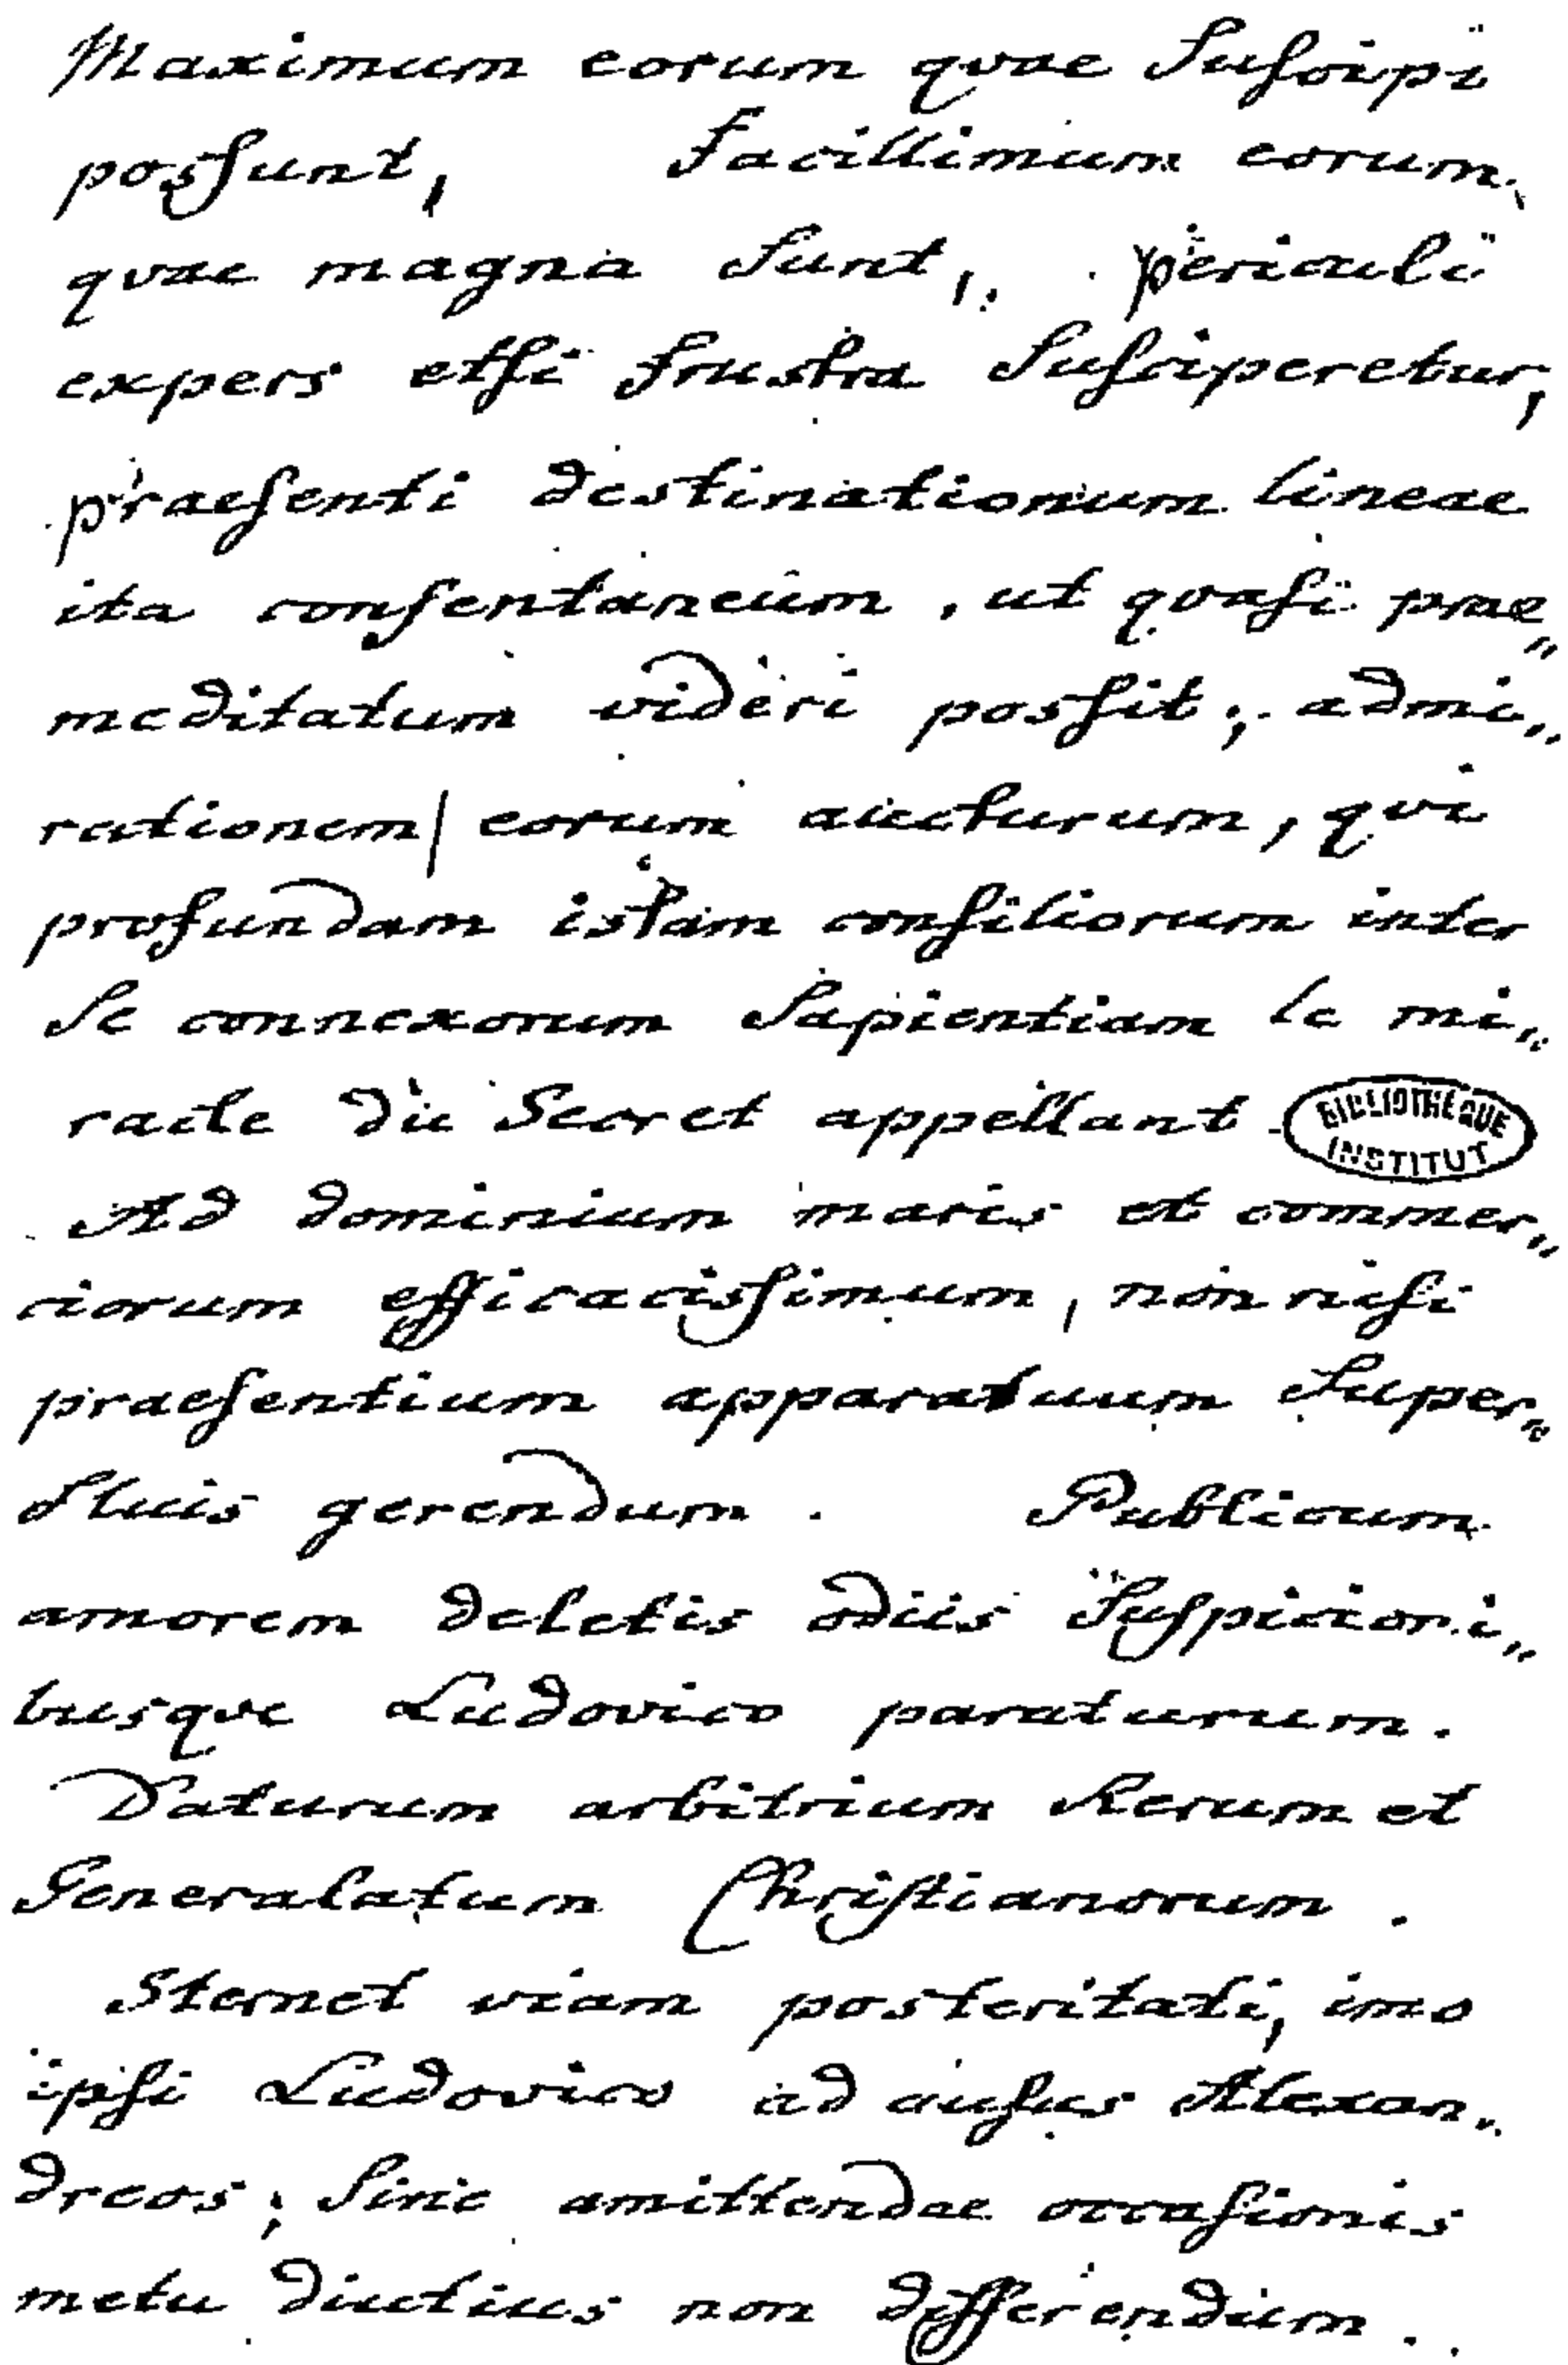 Maximum eorum quae Suſcipi
posſunt, facillimum eorum,
quae magna Sunt, periculi
expers etſi frustra Suſciperetur,
praeſenti destinationum lineae
ita conſentaneum, ut quaſi prae„
meditatum videri posſit; admi„
rationem/ eorum aucturum, qui
profundam istam conſiliorum inter
Se connexorum Sapientiam le mi„
racle du Secret appellant.
BIBLIOTHEQUE
INSTITUT
Ad dominium maris et commer„
ciorum efficacisſimum, non niſi
praeſentium apparatuum Super„
fluis gerendum. Publicum
amorem deletis odiis Suſpicioni„
busque Ludovico paraturum.
Daturum arbitrium Rerum et
Generalatum Chriſtianorum.
Sternet viam posteritati, imo
ipſi Ludovico ad auſus Alexan„
dreos; Sine amittendae occaſionis
metu diutius non differendum.